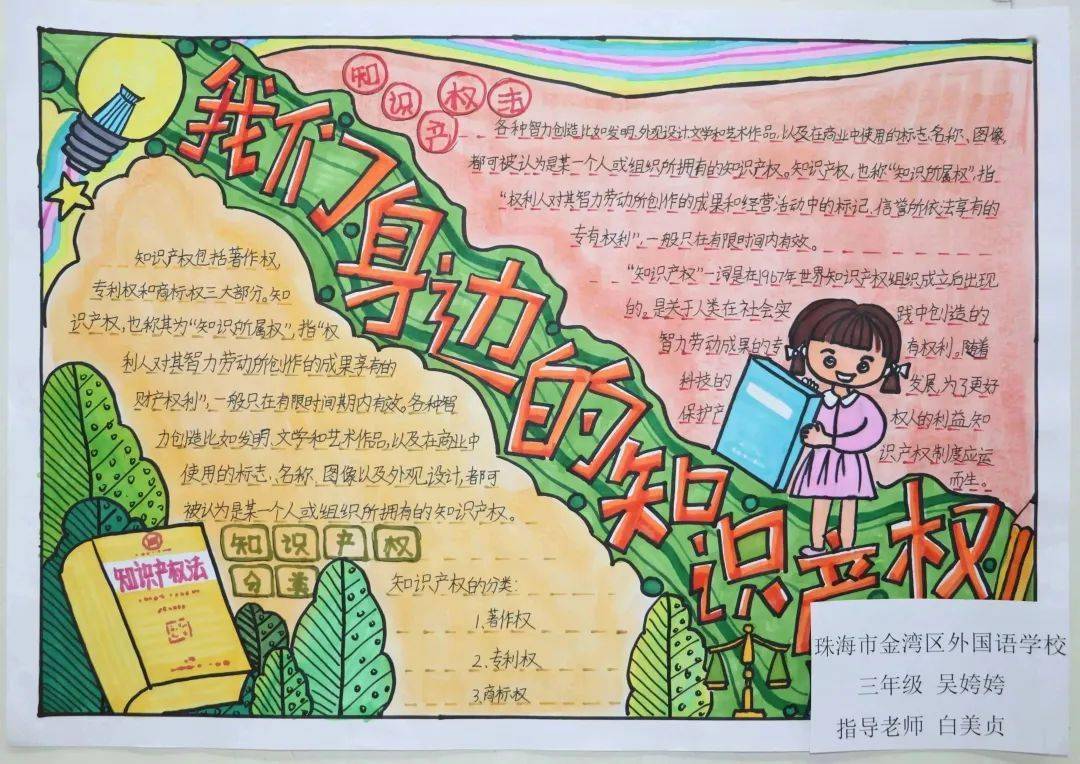 我们身边的知识产权
知识产权法
各种智力创造比如发明、外观设计文学和艺术作品,以及在商业中使用的标志名称、图像,
都可被认为是某一个人或组织所拥有的知识产权。知识产权,也称“知识所属权”,指
“权利人对其智力劳动所创作的成果和经营活动中的标记、信誉所依法享有的
专有权利”,一般只在有限时间内有效。
“知识产权”一词是在1967年世界知识产权组织成立后出现
的。是关于人类在社会实 践中创造的
智力劳动成果的专 有权利。随着
科技的 发展,为了更好
保护产 权人的利益,知
识产权制度应运
而生。
知识产权包括著作权,
专利权和商标权三大部分。知
识产权,也称其为“知识所属权”,指“权
利人对其智力劳动所创作的成果享有的
财产权利”,一般只在有限时间期内有效。各种智
力创造比如发明、文学和艺术作品,以及在商业中
使用的标志、名称、图像以及外观设计,都可
被认为是某一个人或组织所拥有的知识产权。
知识产权
分类
知识产权的分类:
1.著作权
2.专利权
3.商标权
知识产权法
珠海市金湾区外国语学校
三年级 吴姱姱
指导老师 白美贞